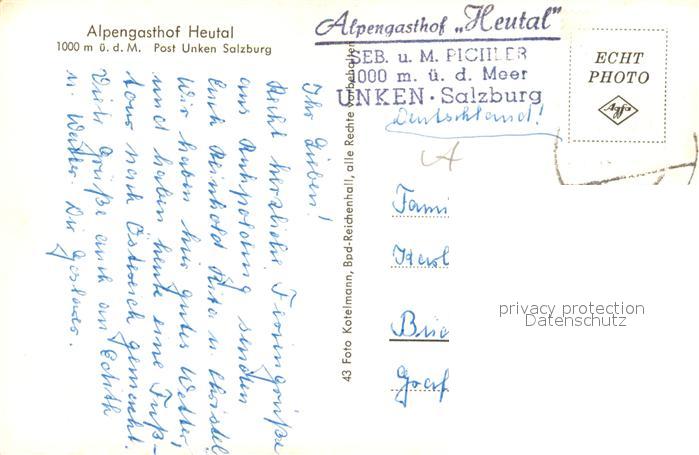 Alpengasthof Heutal
1000 m ü. d. M. Post Unken Salzburg
Alpengasthof „Heutal"
SEB. u. M. PICHLER
1000 m. ü. d. Meer
UNKEN · Salzburg
ECHT
PHOTO
Agfa
Deutschland!
Ihr Lieben!
Recht herzliche Feriengrüße
aus Ruhpolding senden
Euch Reinhold Rita u. Christel
Wir haben hier gutes Wetter,
und haben heute eine Fuß-
tour nach Österreich gemacht.
Viele Grüße auch an Edith
u. Walter. Die
43 Foto Kotelmann, Bad-Reichenhall, alle Rechte vorbehalten
Fami
Karl
Graf
privacy protection
Datenschutz